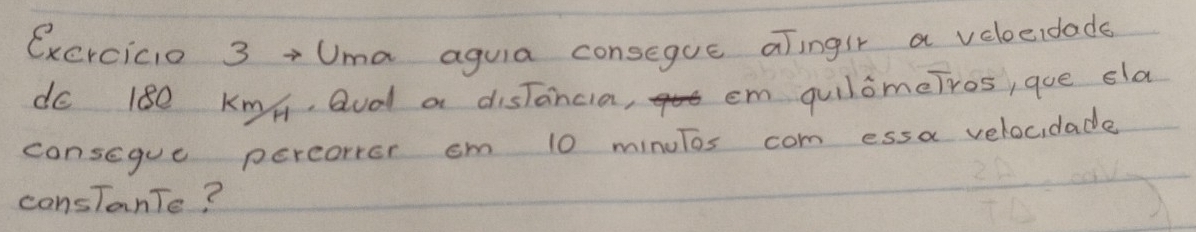 Exercício 3 → Uma aguia consegue atingir a velocidade
de 180 Km/H. Qual a distância, que em quilômetros, que ela
consegue percorrer em 10 minutos com essa velocidade
constante?